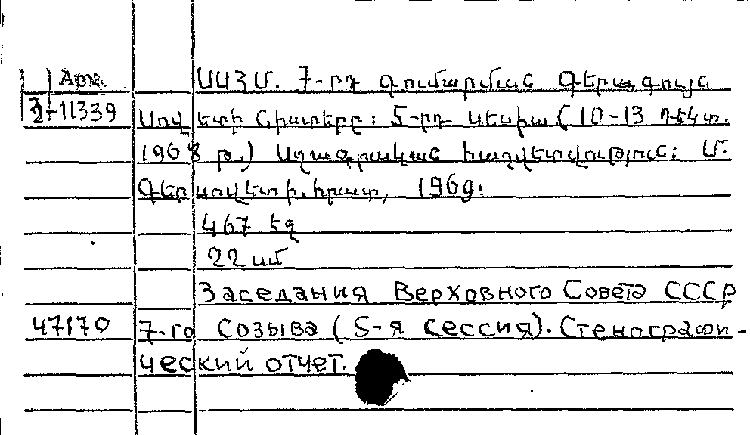 Арм. ՍՍՀՄ. 7-րդ գումարման Գերագույն
2-11339 Սովետի նիստերը: 5-րդ սեսիա (10-13 դեկտ.
1968 թ.) Սղագրական հաշվետվություն: Մ.
Գեր. սովետի հրատ, 1969:
467 էջ
22 սմ
Заседания Верховного Совета СССР
47170 7-го Созыва (5-я сессия). Стенографи-
ческий отчет.